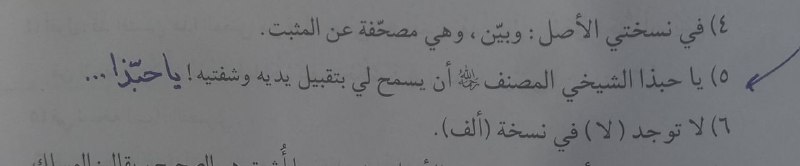 ٤) في نسختي الأصل : وبيّن ، وهي مصحّفة عن المثبت.
٥) يا حبذا الشيخي المصنف ﷀ أن يسمح لي بتقبيل يديه وشفتيه! يا حبّذا ...
٦) لا توجد (لا) في نسخة (ألف).